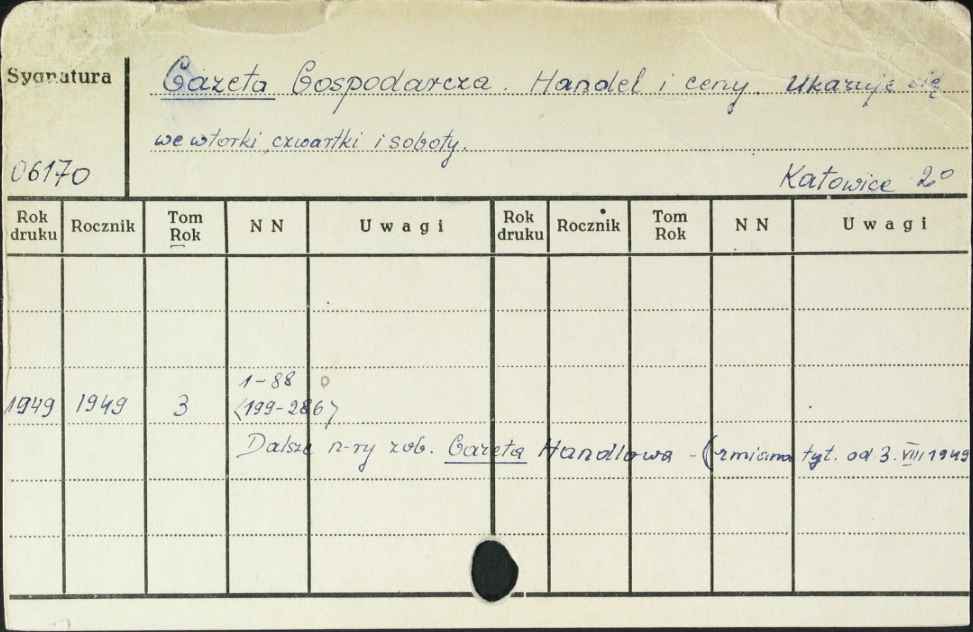 Sygnatura
Gazeta Gospodarcza. Handel i ceny. Ukazuje się
we wtorki, czwartki i soboty.
06170
Katowice 2°
Rok druku Rocznik Tom Rok NN Uwagi Rok druku Rocznik Tom Rok NN Uwagi
1-88 0
1949 1949 3 (199-286)
Dalsze n-ry zob. Gazeta Handlowa - (zmiana tyt. od 3.VIII 1949